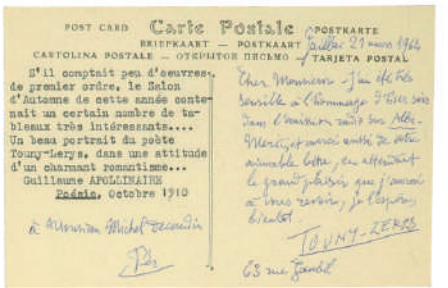 POST CARD Carte Postale POSTKARTE
BRIEFKAART — POSTKAART
CARTOLINA POSTALE — ОТКРЫТОЕ ПИСЬМО — TARJETA POSTAL
S'il comptait peu d'oeuvres
de premier ordre, le Salon
d'Automne de cette année conte-
nait un certain nombre de ta-
bleaux très intéressants....
Un beau portrait du poète
Touny-Lerys, dans une attitude
d'un charmant romantisme...
Guillaume APOLLINAIRE
Poésie, Octobre 1910
à Monsieur Michel Decaudin
21 mars 1964
Cher Monsieur — J'ai été très
sensible à l'hommage d'hier soir
dans l'émission radio sur
Merci, et merci aussi de votre
aimable lettre, en attendant
le grand plaisir que j'aurai
à vous revoir, je l'espère,
bientôt.
TOUNY-LERYS
63 rue